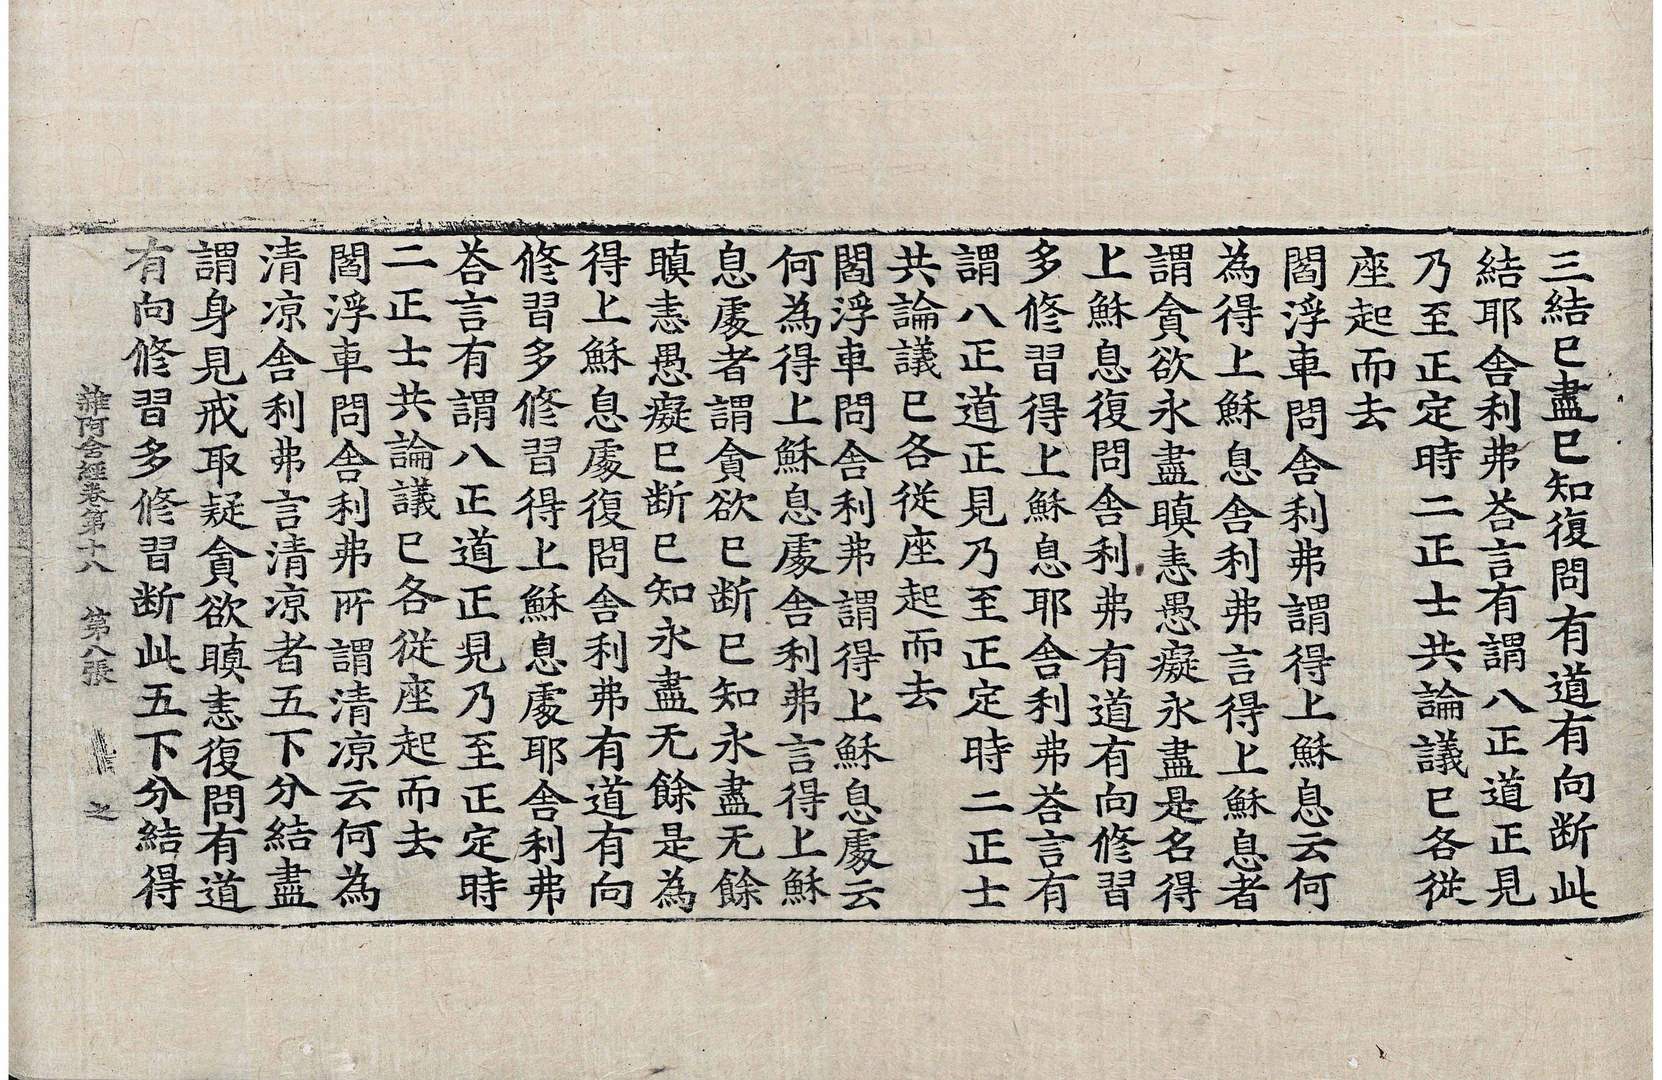 三結已盡已知復問有道有向断此
結耶舍利弗荅言有謂八正道正見
乃至正定時二正士共論議已各從
座起而去
閻浮車問舍利弗謂得上穌息云何
為得上穌息舍利弗言得上穌息者
謂貪欲永盡瞋恚愚癡永盡是名得
上穌息復問舍利弗有道有向修習
多修習得上穌息耶舍利弗荅言有
謂八正道正見乃至正定時二正士
共論議已各從座起而去
閻浮車問舍利弗謂得上穌息處云
何為得上穌息處舍利弗言得上穌
息處者謂貪欲已断已知永盡无餘
瞋恚愚癡已断已知永盡无餘是為
得上穌息處復問舍利弗有道有向
修習多修習得上穌息處耶舍利弗
荅言有謂八正道正見乃至正定時
二正士共論議已各從座起而去
閻浮車問舍利弗所謂清凉云何為
清凉舍利弗言清凉者五下分結盡
謂身見戒取疑貪欲瞋恚復問有道
有向修習多修習断此五下分結得
雜阿含經卷第十八 第八張 之